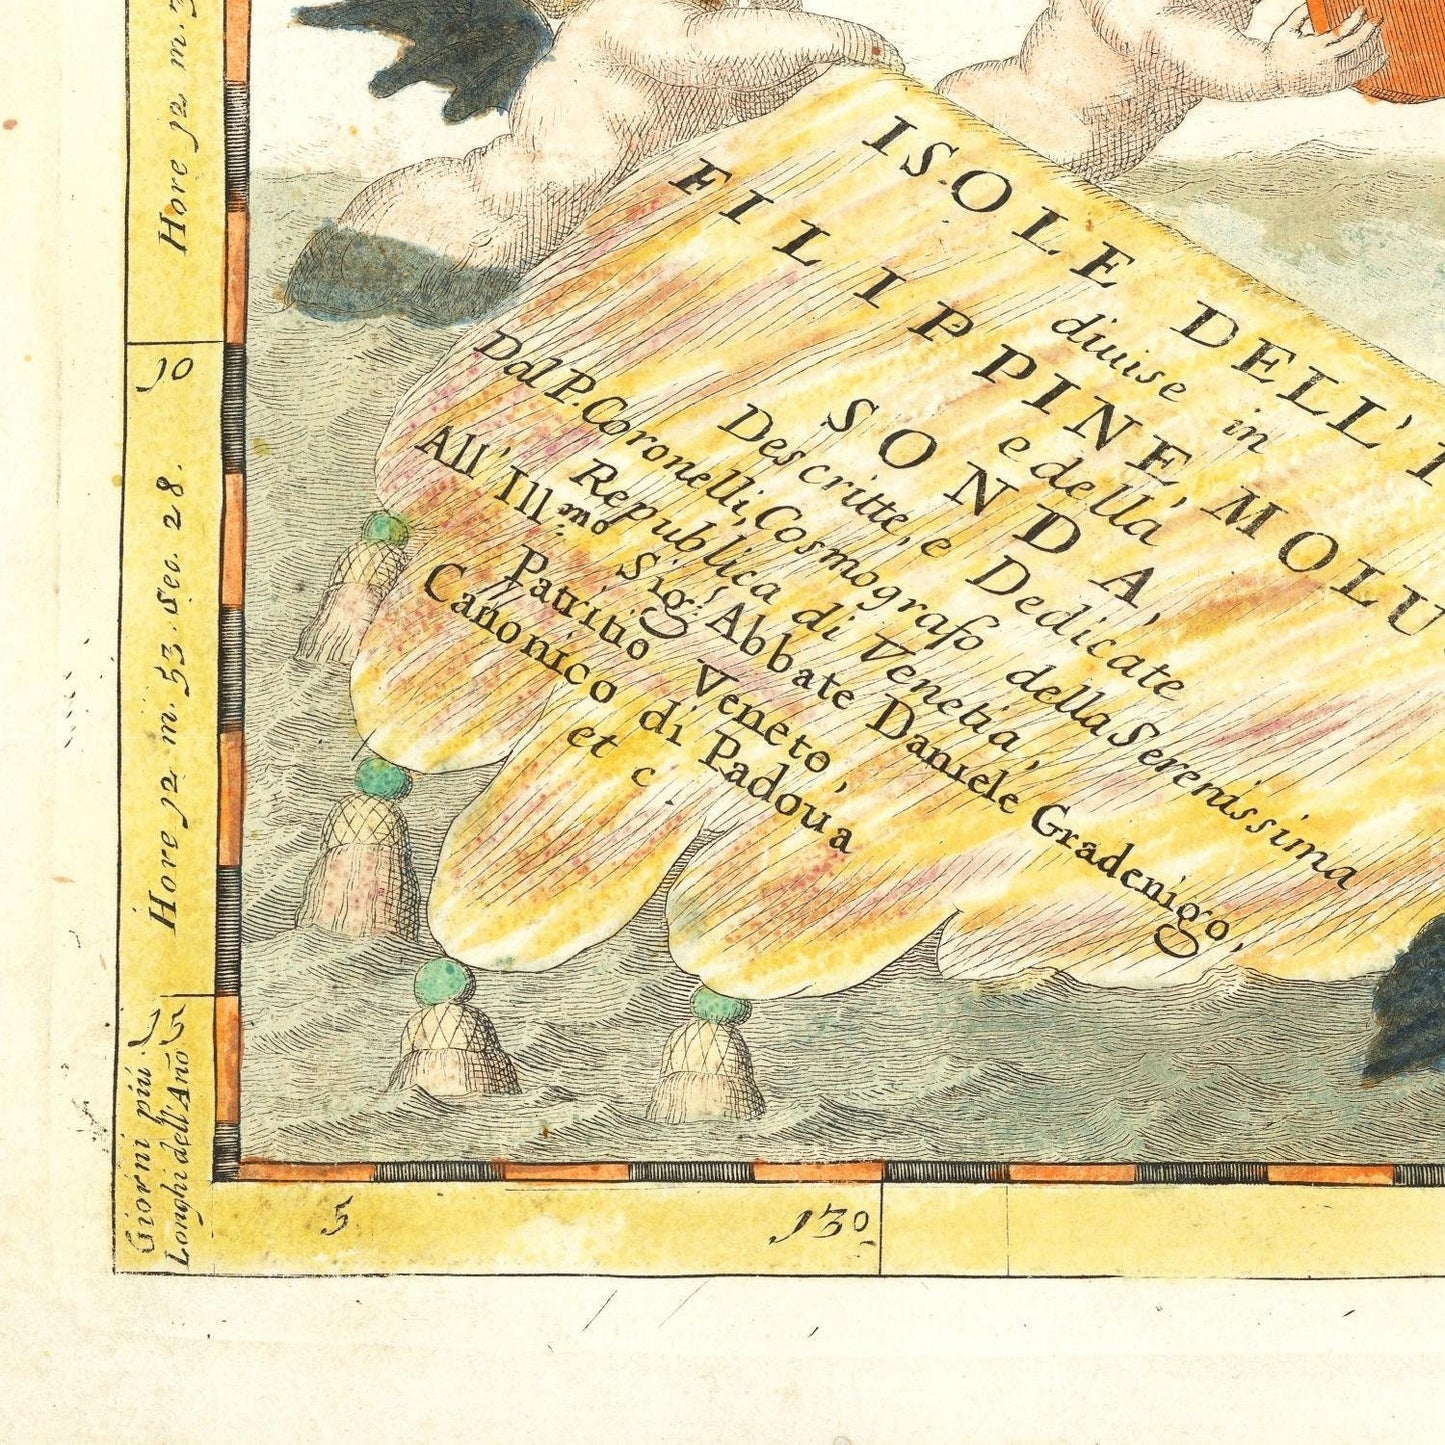 ISOLE DELL' I
diuise in
FILIPPINE MOLU
e della
SONDA,
Descritte, e Dedicate
Dal P. Coronelli, Cosmografo della Serenissima
Republica di Venetia,
All' Ill.mo Sig.r Abbate Daniele Gradenigo,
Patritio Veneto,
Canonico di Padoua
et c.
Hore 12 m. 3
10
Hore 12 m. 53. Sec. 28.
15
Giorni piú
Longhi dell' Año
5
130